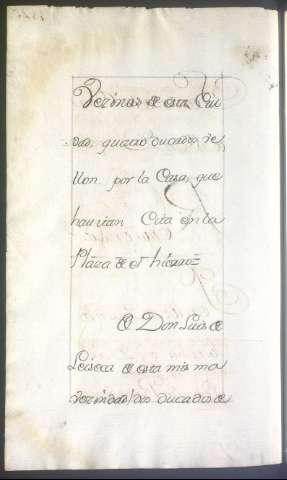 Vezinos de esta Ciu
dad, quatro ducados Ve
llon. por la Casa, que
havitan Cita en la
Plaza de Sn
Don Luis de
de esta misma
Vezindad, dos ducados de